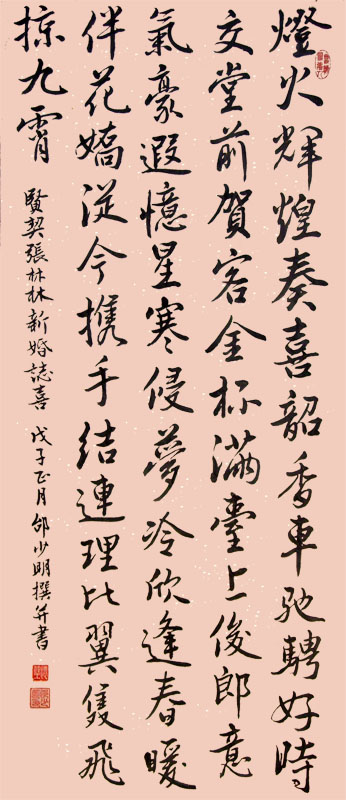 燈火輝煌奏喜韶香車馳騁好時
交堂前賀客金杯滿臺上俊郎意
氣豪遐憶星寒侵夢冷欣逢春暖
伴花嬌從今携手結連理比翼隻飛
掠九霄
賢契張林林新婚誌喜 戊子正月邰少明撰并書